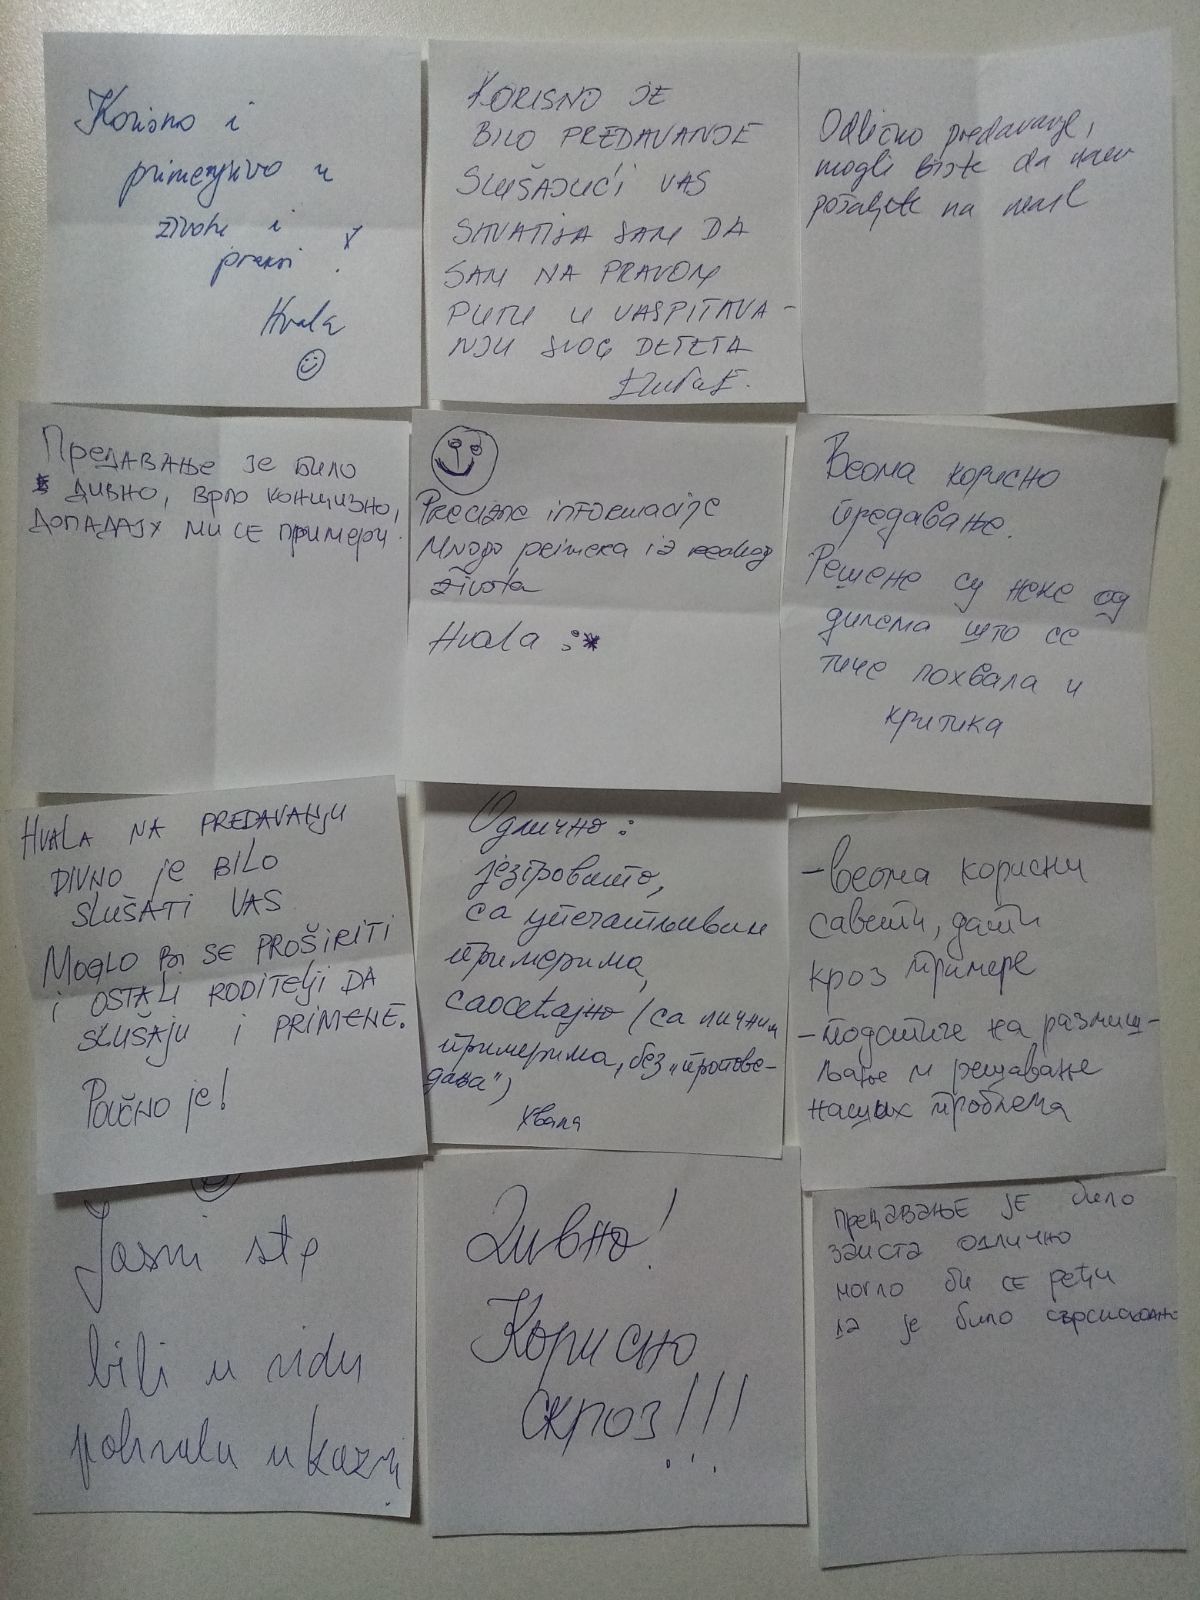 Korisno i
primenjivo u
životu i
praksi !
Hvala
KORISNO JE
BILO PREDAVANJE
SLUŠAJUĆI VAS
SHVATILA SAM DA
SAM NA PRAVOM
PUTU U VASPITAVA -
NJU SVOG DETETA
Odlično predavanje,
mogli biste da nam
pošaljete na meil
Предавање је било
дивно, врло концизно,
допадају ми се примери.
Precizne informacije
Mnogo primera iz realnog
života
Hvala :*
Веома корисно
предавање.
Решене су неке од
дилема што се
тиче похвала и
критика
HVALA NA PREDAVANJU
DIVNO je BILO
SLUŠATI VAS
MOGLO BI SE PROŠIRITI
i OSTALI RODITELJI DA
SLUŠAJU i PRIMENE.
POUČNO je!
Одлично:
језгровито,
са упечатљивим
примерима,
саосећајно (са личним
примерима, без „пропове-
дања")
Хвала
- веома корисни
савети, дати
кроз примере
- подстиче на размиш -
љање и решавање
наших проблема
Jasni ste
bili u vidu
pohvala u kazni
Дивно!
Корисно
скроз!!!
Предавање је било
заиста одлично
могло би се рећи
да је било сврсисходно